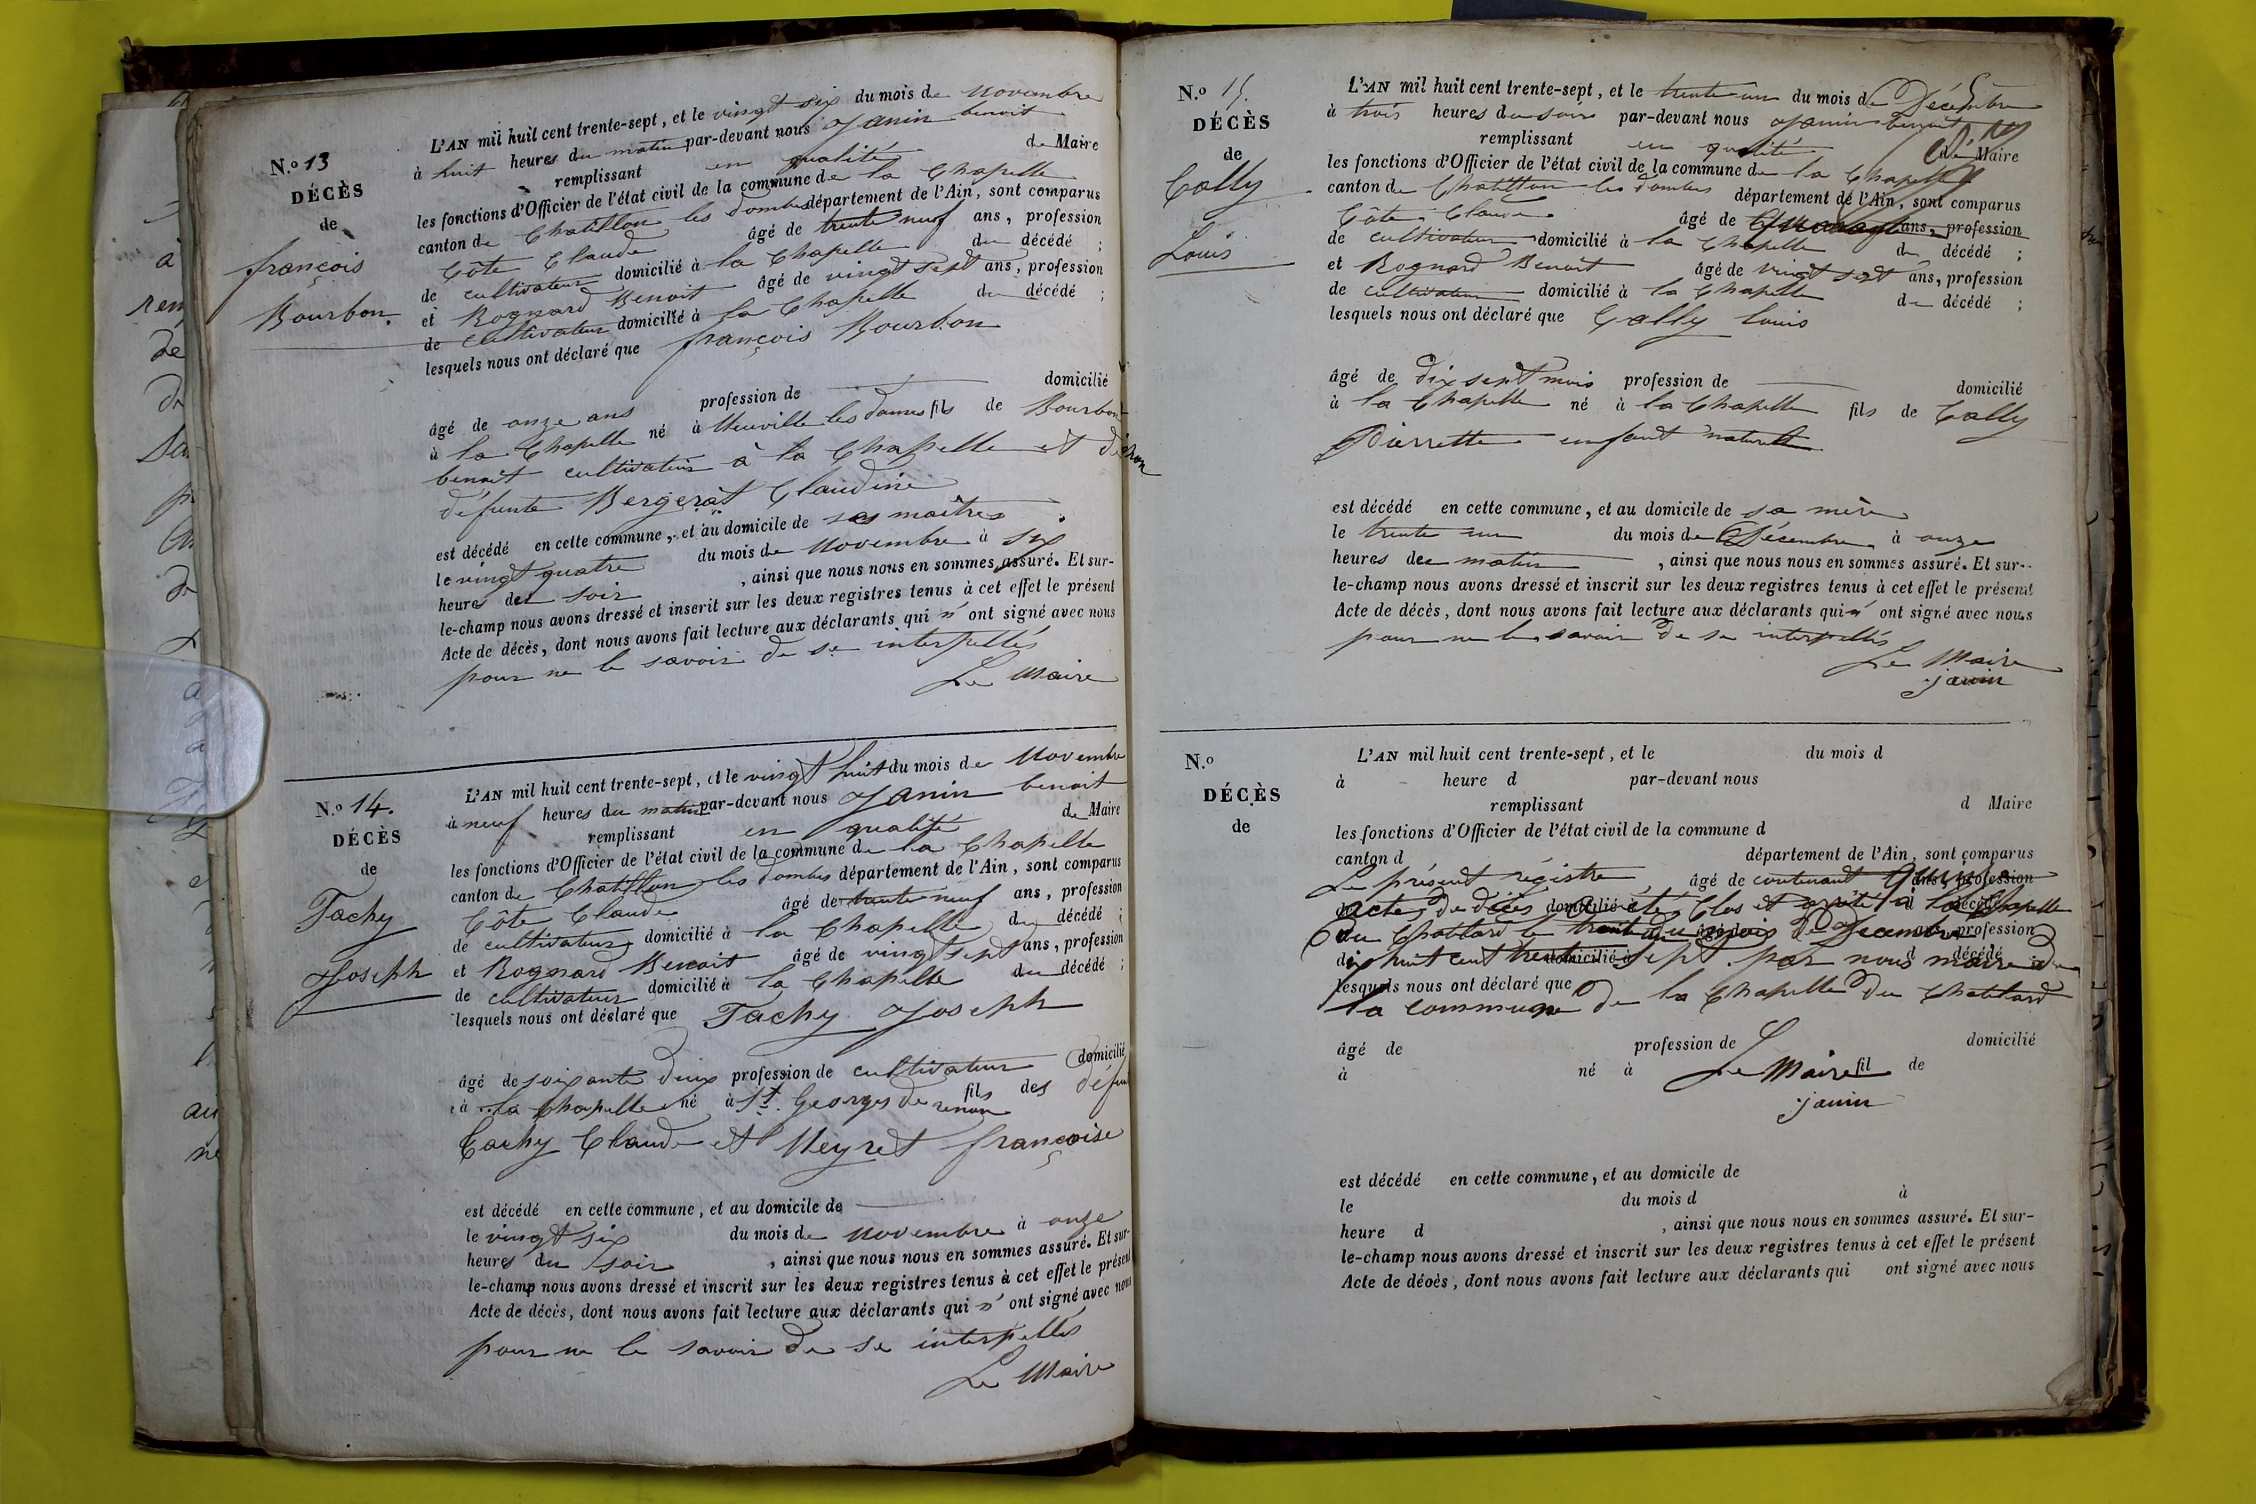 N.º 13
DÉCÈS
de
françois
Bourbon
L'AN mil huit cent trente-sept, et le vingt six du mois de Novembre
à huit heures du matin par-devant nous Janin benoit
remplissant en qualité de Maire
les fonctions d'Officier de l'état civil de la commune de la Chapelle
canton de Chatillon les dombes département de l'Ain, sont comparus
Côte Claude âgé de trente neuf ans, profession
de cultivateur domicilié à la Chapelle du décédé ;
et Rognard Benoit âgé de vingt sept ans, profession
de cultivateur domicilié à la Chapelle du décédé ;
lesquels nous ont déclaré que françois Bourbon
âgé de onze ans profession de domicilié
à la Chapelle né à Neuville les dames fils de Bourbon
benoit cultivateur à la Chapelle et de
défunte Bergerat Claudine
est décédé en cette commune, et au domicile de ses maîtres
le vingt quatre du mois de Novembre à six
heures du soir , ainsi que nous nous en sommes assuré. Et sur-
le-champ nous avons dressé et inscrit sur les deux registres tenus à cet effet le présent
Acte de décès, dont nous avons fait lecture aux déclarants qui n' ont signé avec nous
pour ne le savoir de se interpellés
Le Maire
N.º 14.
DÉCÈS
de
Tachy
Joseph
L'AN mil huit cent trente-sept, et le vingt huit du mois de Novembre
à neuf heures du matin par-devant nous Janin benoit
remplissant en qualité de Maire
les fonctions d'Officier de l'état civil de la commune de la Chapelle
canton de Chatillon les dombes département de l'Ain, sont comparus
Côte Claude âgé de trente neuf ans, profession
de cultivateur domicilié à la Chapelle du décédé ;
et Rognard Benoit âgé de vingt sept ans, profession
de cultivateur domicilié à la Chapelle du décédé ;
lesquels nous ont déclaré que Tachy Joseph
âgé de soixante deux profession de cultivateur domicilié
à la Chapelle né à St. Georges de renon fils des défun
Tachy Claude et Neyret françoise
est décédé en cette commune, et au domicile de
le vingt six du mois de Novembre à onze
heures du soir , ainsi que nous nous en sommes assuré. Et sur-
le-champ nous avons dressé et inscrit sur les deux registres tenus à cet effet le présent
Acte de décès, dont nous avons fait lecture aux déclarants qui n' ont signé avec nous
pour ne le savoir de se interpellés
Le Maire
N.º 15.
DÉCÈS
de
Cally
Louis
L'AN mil huit cent trente-sept, et le trente un du mois de Décembre
à trois heures du soir par-devant nous Janin benoit
remplissant en qualité de Maire
les fonctions d'Officier de l'état civil de la commune de la Chapelle
canton de Chatillon les dombes département de l'Ain, sont comparus
Côte Claude âgé de ans, profession
de cultivateur domicilié à la Chapelle du décédé ;
et Rognard Benoit âgé de vingt sept ans, profession
de cultivateur domicilié à la Chapelle du décédé ;
lesquels nous ont déclaré que Cally louis
âgé de dix sept mois profession de domicilié
à la Chapelle né à la Chapelle fils de Cally
Pierrette enfant naturelle
est décédé en cette commune, et au domicile de sa mère
le trente un du mois de Décembre à onze
heures du matin , ainsi que nous nous en sommes assuré. Et sur-
le-champ nous avons dressé et inscrit sur les deux registres tenus à cet effet le présent
Acte de décès, dont nous avons fait lecture aux déclarants qui n' ont signé avec nous
pour ne le savoir de se interpellés
Le Maire
janin
N.º
DÉCÈS
de
L'AN mil huit cent trente-sept, et le du mois d
à heure d par-devant nous
remplissant d Maire
les fonctions d'Officier de l'état civil de la commune d
canton d département de l'Ain, sont comparus
Le présent régistre âgé de contenant quinze ans, profession
actes de décès domicilié à été Clos et arrêté à la Chapelle
du Chatlard le trente un du mois de Décembre profession
dix huit cent trente sept domicilié à par nous maire de d décédé
lesquels nous ont déclaré que
la commune de la Chapelle du Chatelard
âgé de profession de domicilié
à né à fil de
Le Maire
janin
est décédé en cette commune, et au domicile de
le du mois d à
heure d , ainsi que nous nous en sommes assuré. Et sur-
le-champ nous avons dressé et inscrit sur les deux registres tenus à cet effet le présent
Acte de décès, dont nous avons fait lecture aux déclarants qui ont signé avec nous